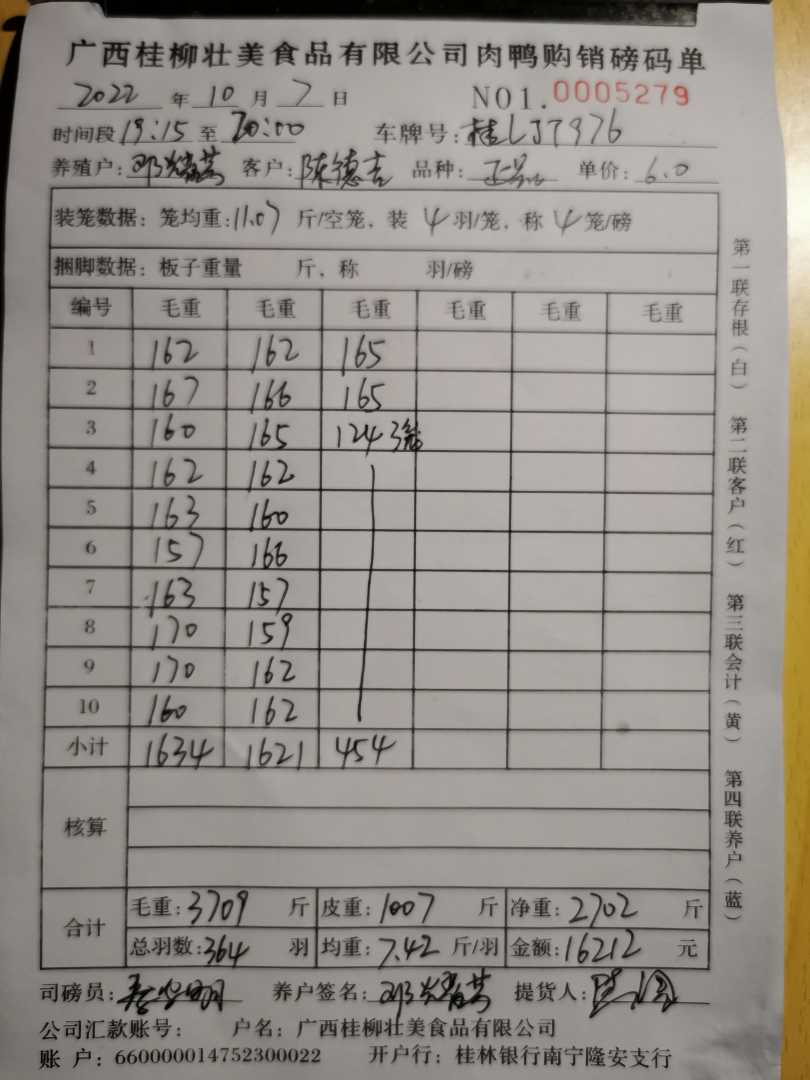 广西桂柳壮美食品有限公司肉鸭购销磅码单
2022 年 10 月 7 日 NO1.0005279
时间段 19:15 至 20:00 车牌号: 桂LJT976
养殖户: 邓 客户: 陈德吉 品种: 单价: 6.0
装笼数据: 笼均重: 11.07 斤/空笼, 装 4 羽/笼, 称 4 笼/磅
捆脚数据: 板子重量 斤, 称 羽/磅
编号 毛重 毛重 毛重 毛重 毛重 毛重
1 162 162 165
2 167 166 165
3 160 165 124 3笼
4 162 162
5 163 160
6 157 166
7 163 157
8 170 159
9 170 162
10 160 162
小计 1634 1621 454
核算
合计
毛重: 3709 斤 皮重: 1007 斤 净重: 2702 斤
总羽数: 364 羽 均重: 7.42 斤/羽 金额: 16212 元
司磅员: 养户签名: 邓 提货人:
公司汇款账号: 户名: 广西桂柳壮美食品有限公司
账 户: 660000014752300022 开户行: 桂林银行南宁隆安支行
第一联存根(白) 第二联客户(红) 第三联会计(黄) 第四联养户(蓝)